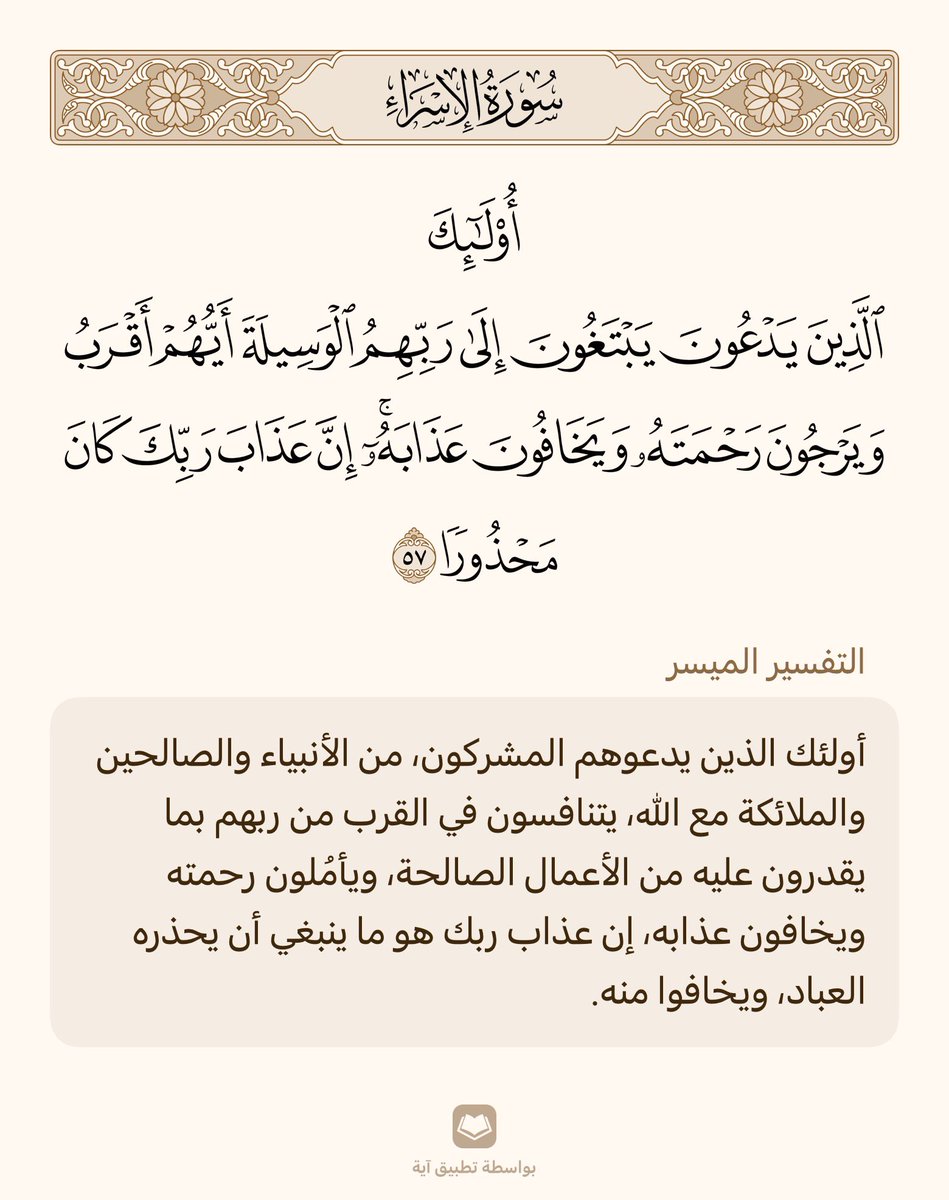 سُورَةُ الإِسْرَاءِ
أُوْلَـٰٓئِكَ
ٱلَّذِينَ يَدْعُونَ يَبْتَغُونَ إِلَىٰ رَبِّهِمُ ٱلْوَسِيلَةَ أَيُّهُمْ أَقْرَبُ
وَيَرْجُونَ رَحْمَتَهُۥ وَيَخَافُونَ عَذَابَهُۥٓۚ إِنَّ عَذَابَ رَبِّكَ كَانَ
مَحْذُورٗا ٥٧
التفسير الميسر
أولئك الذين يدعوهم المشركون، من الأنبياء والصالحين
والملائكة مع الله، يتنافسون في القرب من ربهم بما
يقدرون عليه من الأعمال الصالحة، ويأمُلون رحمته
ويخافون عذابه، إن عذاب ربك هو ما ينبغي أن يحذره
العباد، ويخافوا منه.
بواسطة تطبيق آية